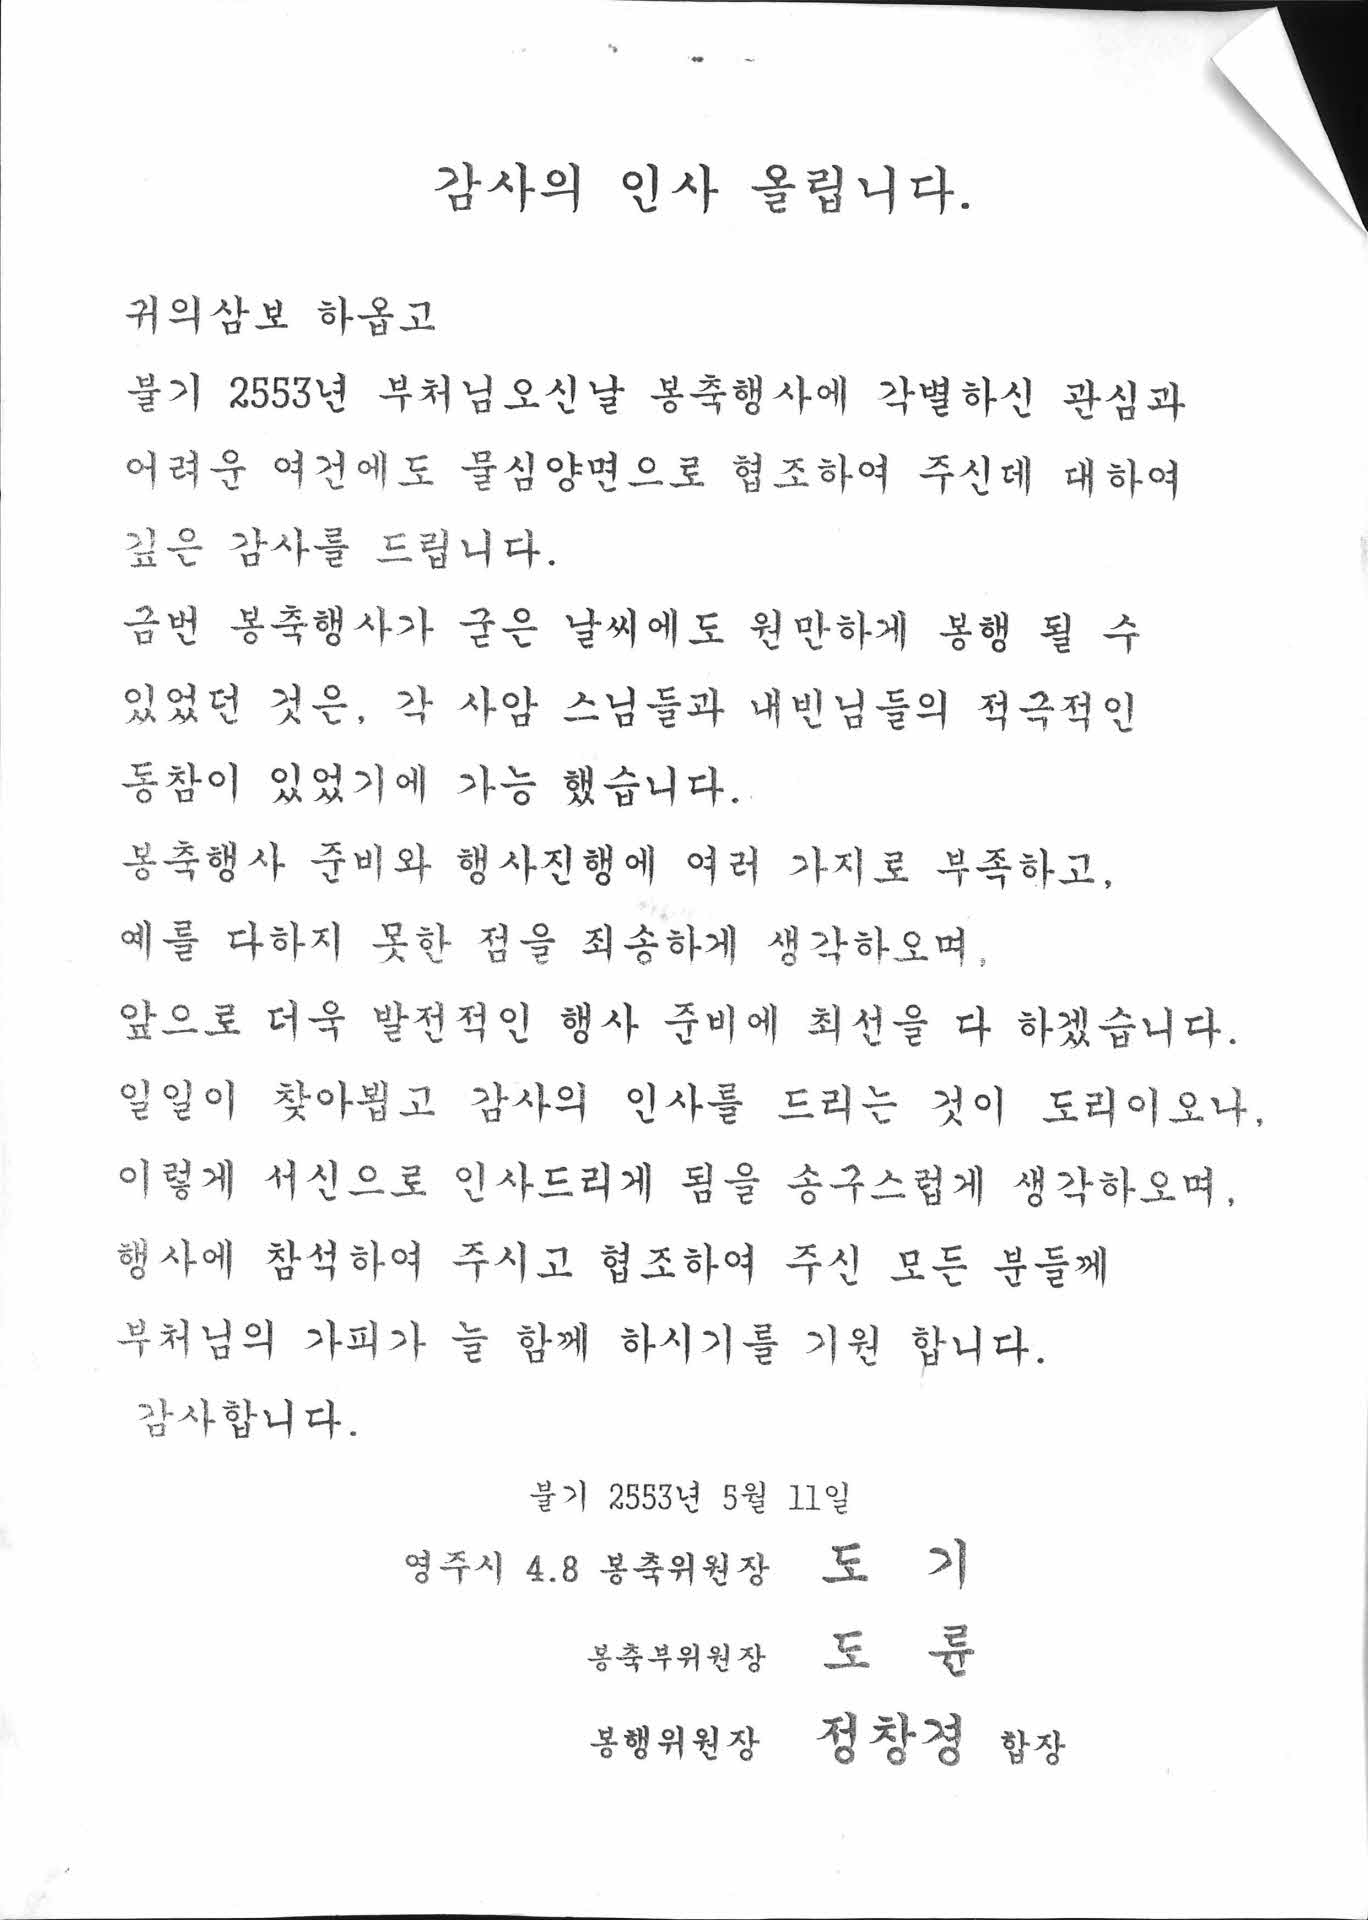 감사의 인사 올립니다.
귀의삼보 하옵고
불기 2553년 부처님오신날 봉축행사에 각별하신 관심과
어려운 여건에도 물심양면으로 협조하여 주신데 대하여
깊은 감사를 드립니다.
금번 봉축행사가 굳은 날씨에도 원만하게 봉행 될 수
있었던 것은, 각 사암 스님들과 내빈님들의 적극적인
동참이 있었기에 가능 했습니다.
봉축행사 준비와 행사진행에 여러 가지로 부족하고,
예를 다하지 못한 점을 죄송하게 생각하오며,
앞으로 더욱 발전적인 행사 준비에 최선을 다 하겠습니다.
일일이 찾아뵙고 감사의 인사를 드리는 것이 도리이오나,
이렇게 서신으로 인사드리게 됨을 송구스럽게 생각하오며,
행사에 참석하여 주시고 협조하여 주신 모든 분들께
부처님의 가피가 늘 함께 하시기를 기원 합니다.
감사합니다.
불기 2553년 5월 11일
영주시 4.8 봉축위원장 도 기
봉축부위원장 도 륜
봉행위원장 정창경 합장